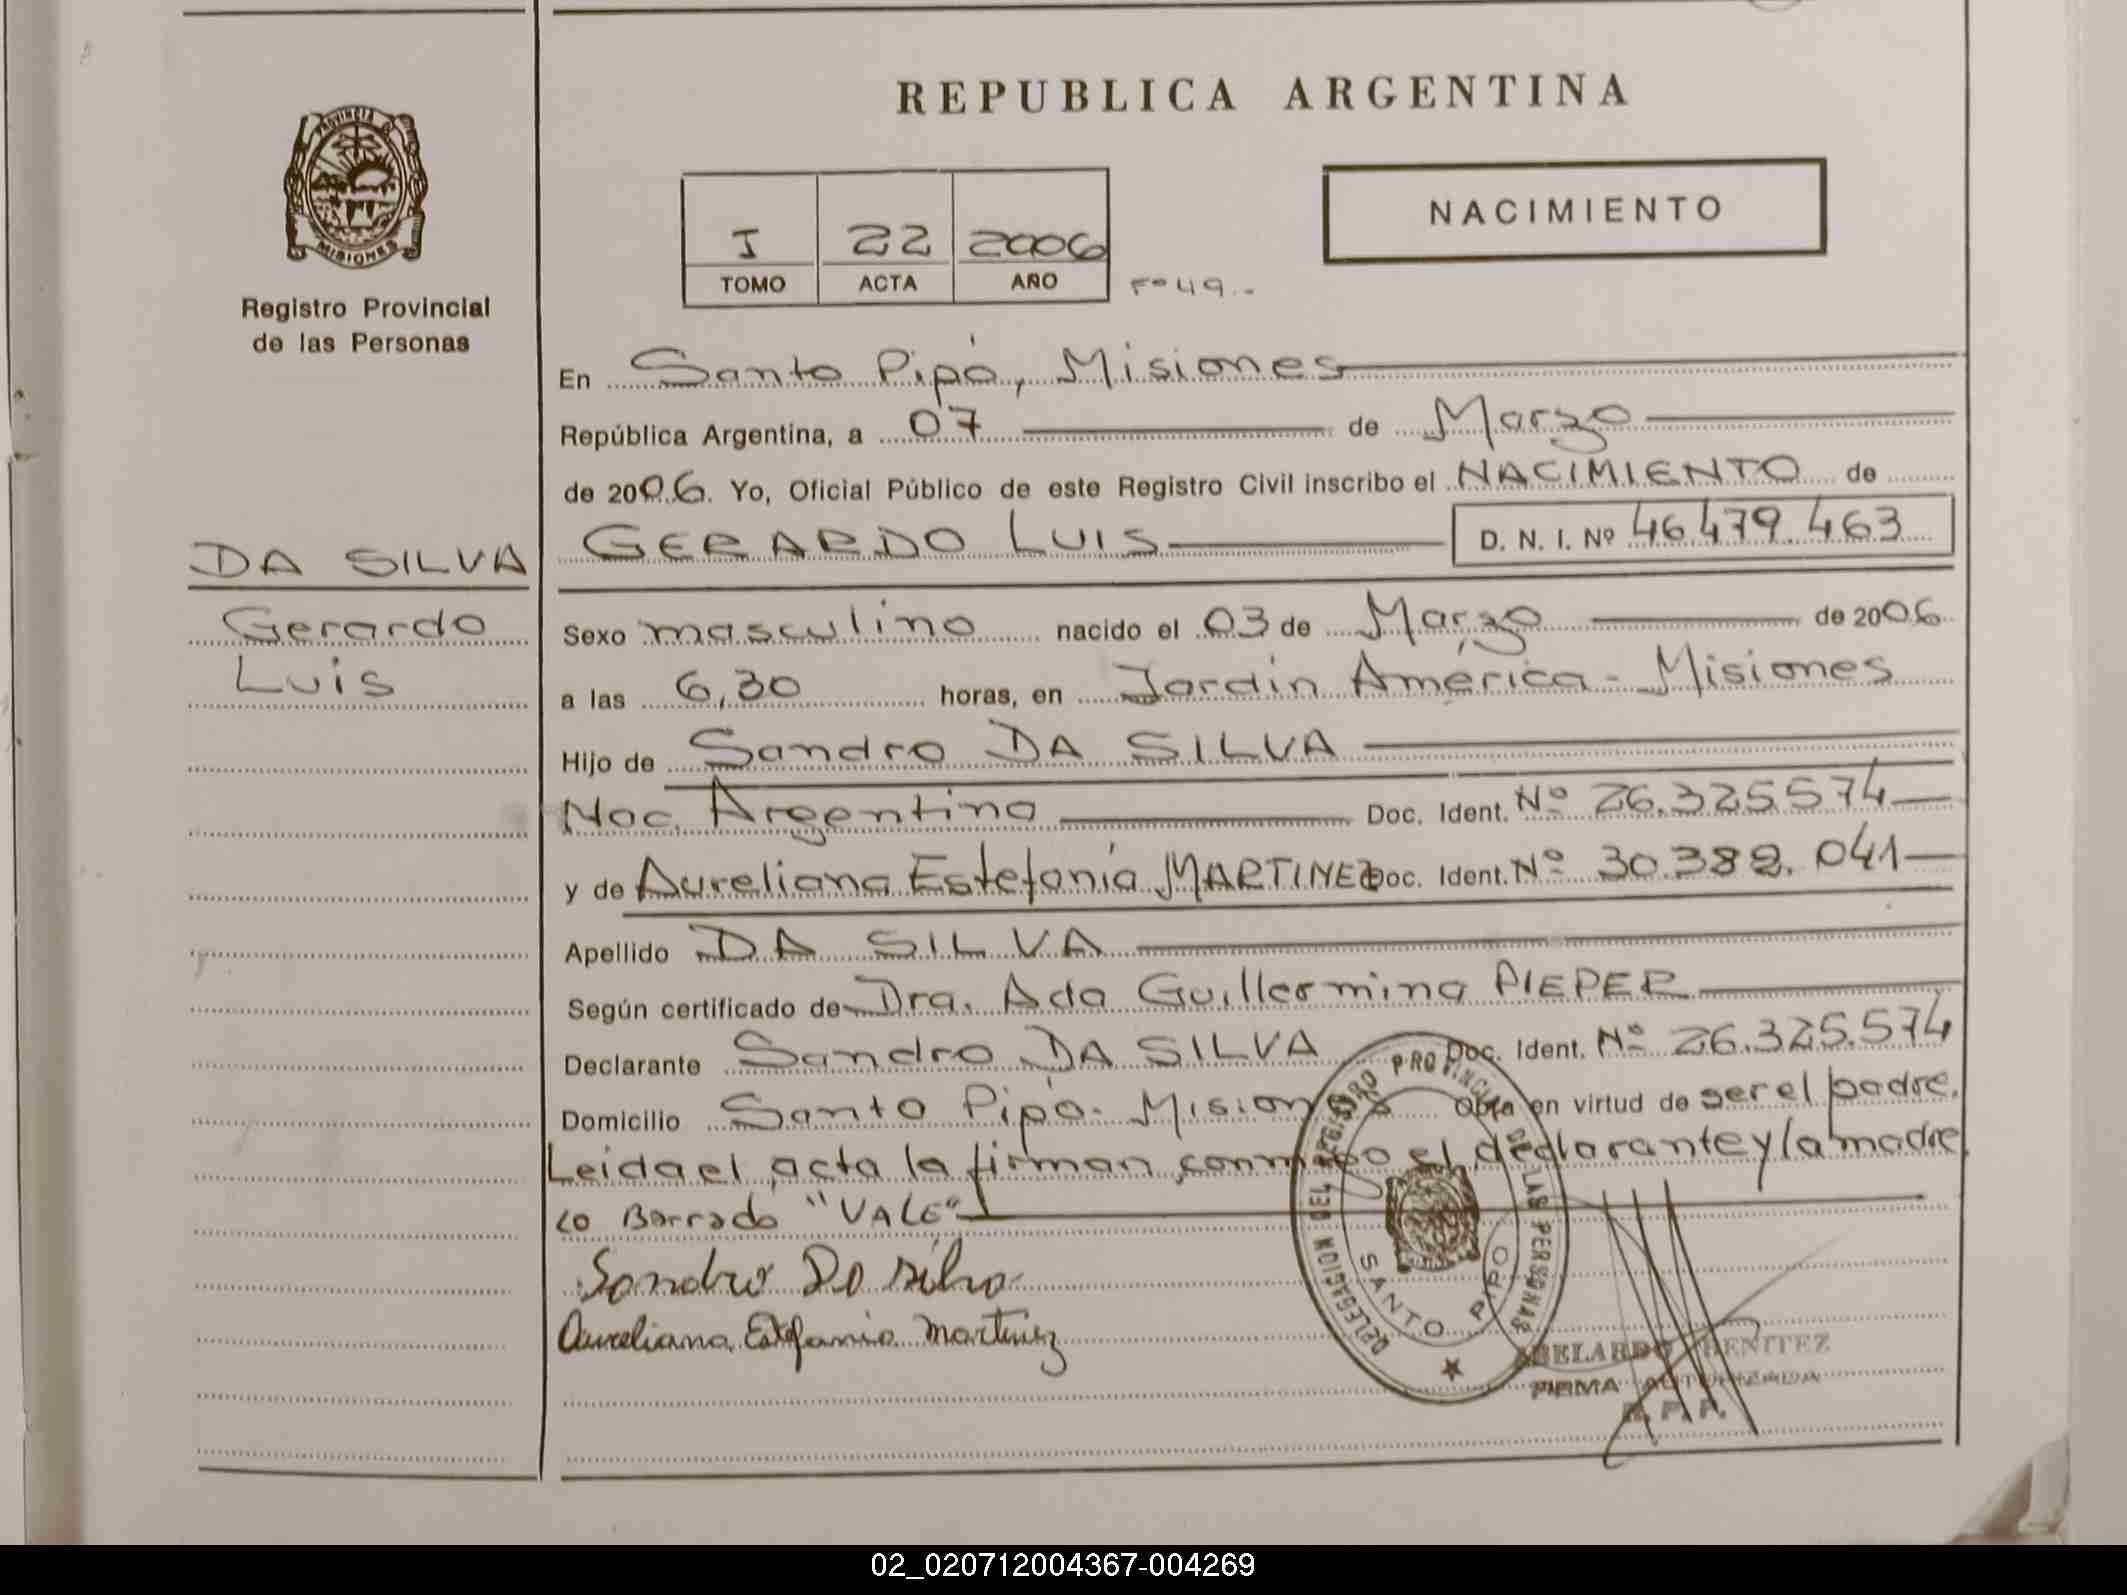 REPUBLICA ARGENTINA
PROVINCIA D MISIONES
Registro Provincial
de las Personas
NACIMIENTO
I 22 2006
TOMO ACTA AÑO Fº 49.-
En Santo Pipó, Misiones
República Argentina, a 07 de Marzo
de 2006. Yo, Oficial Público de este Registro Civil inscribo el NACIMIENTO de
DA SILVA
GERARDO LUIS D. N. I. Nº 46.479.463
Gerardo
Luis
Sexo masculino nacido el 03 de Marzo de 2006.
a las 6,30 horas, en Jardín América - Misiones
Hijo de Sandro DA SILVA
Nac. Argentino Doc. Ident. Nº 26.325.574
y de Aureliana Estefanía MARTINEZ Doc. Ident. Nº 30.382.041
Apellido DA SILVA
Según certificado de Dra. Ada Guillermina PIEPER
Declarante Sandro DA SILVA Doc. Ident. Nº 26.325.574
Domicilio Santo Pipó - Misiones Obra en virtud de ser el padre.
Leida el acta la firman conmigo el declarante y la madre
Lo Borrado "VALE"
Sandro Da Silva
Aureliana Estefania Martinez
DELEGACION DEL REGISTRO PROVINCIAL DE LAS PERSONAS
SANTO PIPO
ABELARDO BENITEZ
FIRMA AUTORIZADA
R. P. P.
02_020712004367-004269